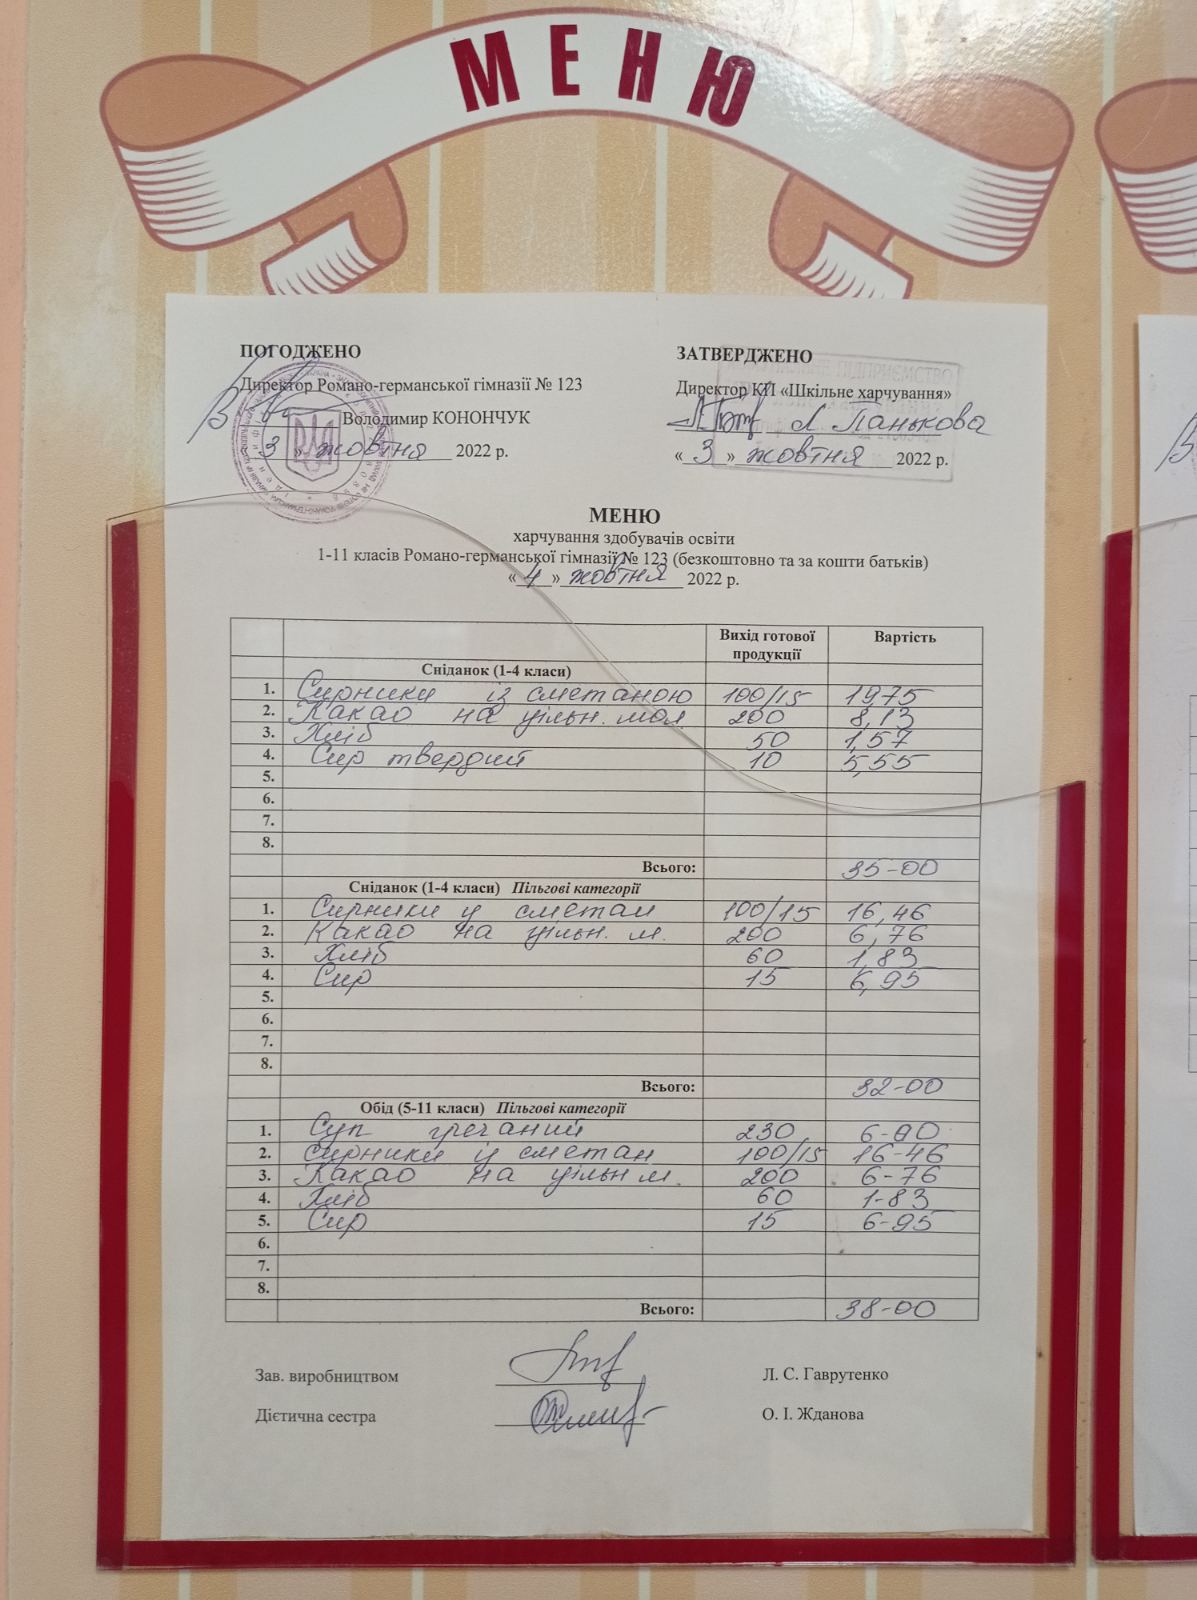 МЕНЮ
ПОГОДЖЕНО
Директор Романо-германської гімназії № 123
Володимир КОНОНЧУК
3 » жовтня 2022 р.
ЗАТВЕРДЖЕНО
Директор КП «Шкільне харчування»
Л Панькова
« 3 » жовтня 2022 р.
МЕНЮ
харчування здобувачів освіти
1-11 класів Романо-германської гімназії № 123 (безкоштовно та за кошти батьків)
« 4 » жовтня 2022 р.
Вихід готової продукції Вартість
Сніданок (1-4 класи)
1. Сирники із сметаною 100/15 1975
2. Какао на цільн. мол 200 8,13
3. Хліб 50 1,57
4. Сир твердий 10 5,55
5.
6.
7.
8.
Всього: 35-00
Сніданок (1-4 класи) Пільгові категорії
1. Сирники із сметан 100/15 16,46
2. Какао на цільн. м. 200 6,76
3. Хліб 60 1,83
4. Сир 15 6,95
5.
6.
7.
8.
Всього: 32-00
Обід (5-11 класи) Пільгові категорії
1. Суп гречаний 230
2. сирники із сметан 100/15 16-46
3. Какао на цільн м. 200 6-76
4. Хліб 60 1-83
5. Сир 15 6-95
6.
7.
8.
Всього: 38-00
Зав. виробництвом Л. С. Гаврутенко
Дієтична сестра О. І. Жданова